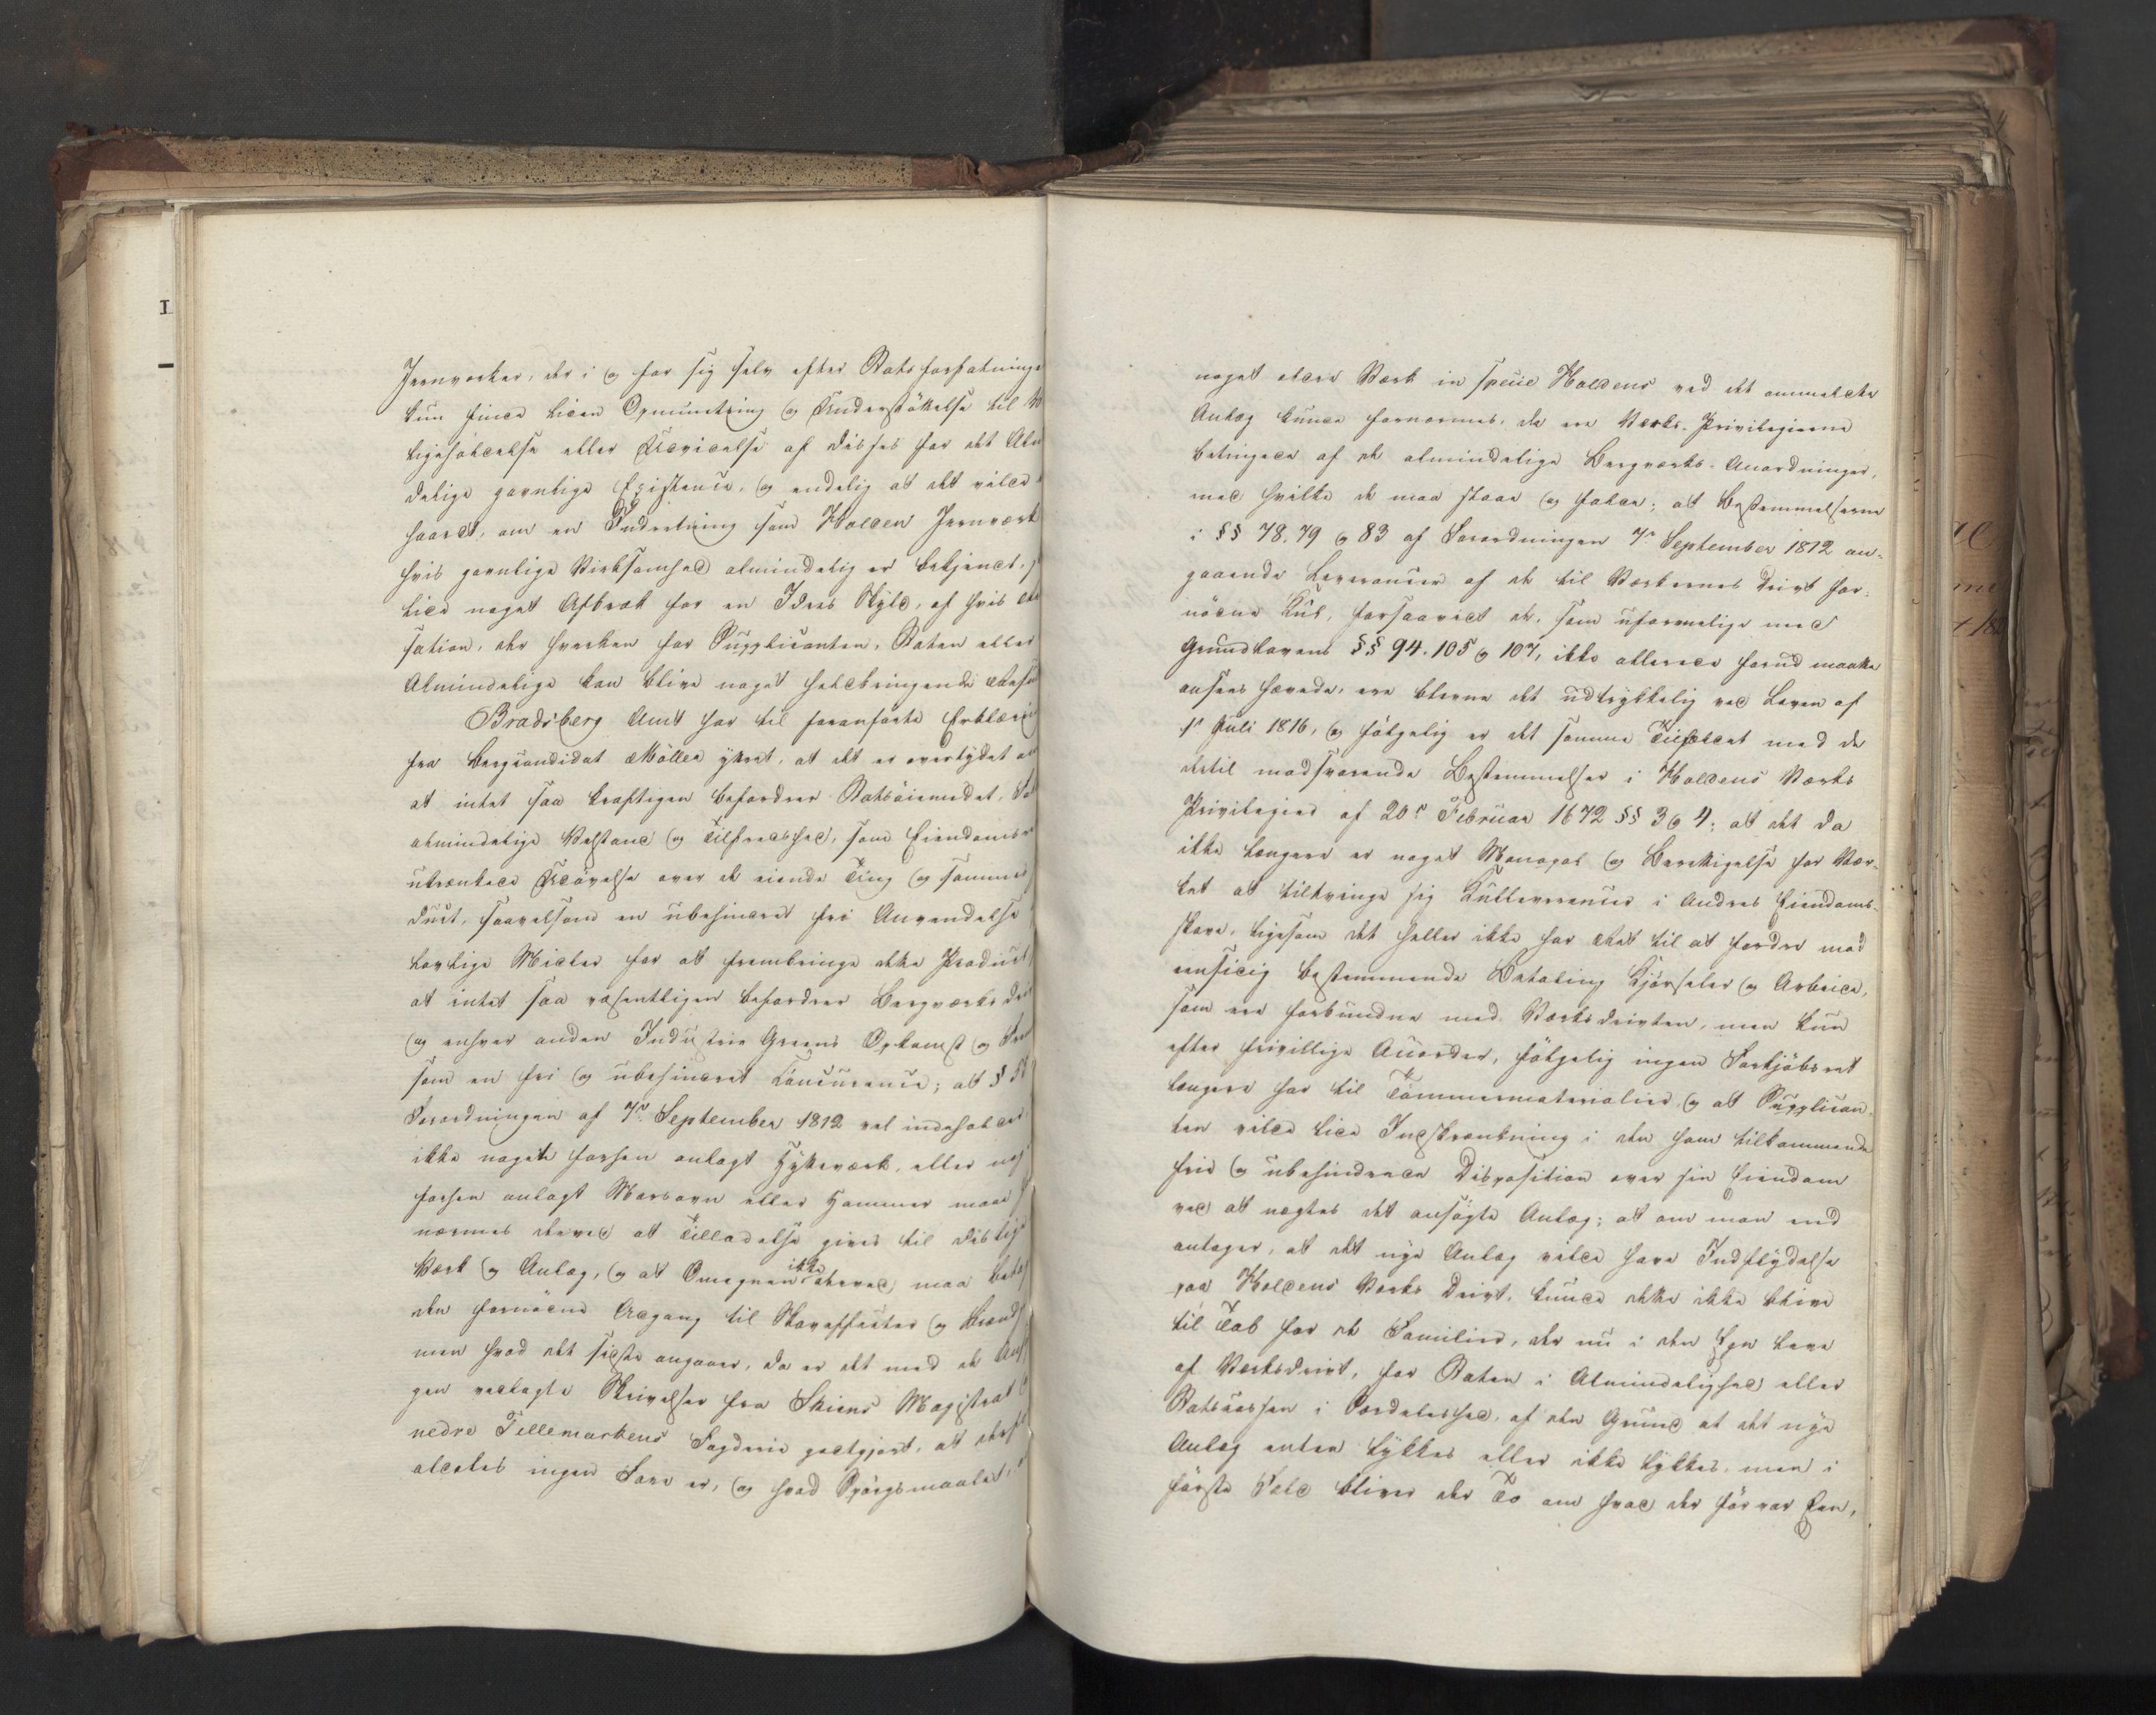 Jernværker, der i og for sig selv efter Statsforfatninge
kun finde liden Opmuntring og Understøttelse til V
ligeholdelse eller Udvidelse af disses for det Alm
delige gavnlige Existence, og endelig at det vilde
haardt, om en Indretning som Holden Jernværk
hvis gavnlige Virksomhed almindelig er bekjendt,
lide noget Afbræk for en Idees Skyld, af hvis
sation, der hverken for Supplicanten, Staten eller
Almindelige kan blive noget heldbringende
Bradsberg Amt har til foranførte Erklæring
fra Bergcandidat Møller yttret, at det er overtydet
at intet saa kraftigen befordrer Statsøiemedet,
almindelige Velstand og Tilfredshed, som Eiendoms
ukrænkede Udøvelse over de eiende Ting og sammes
duct, saavelsom en ubehindret fri Anvendelse
lovlige Midler for at frembringe dette Product,
at intet saa væsentligen befordrer Bergværksdri
og enhver anden Industrie Greens Opkomst og
som en fri og ubehindret Concurence; at §
Forordningen af 7de September 1812 vel indeholder
ikke noget forhen anlagt Hytteværk, eller
forhen anlagt Masovn eller Hammer maae
nærmes derved at Tilladelse gives til deslig
Værk og Anlæg, og at Omegnen ikke derved maa
den fornødne Adgang til Skoveffecter og Brænd
men hvad det sidste angaaer, da er det med de
gen vedlagte Skrivelser fra Skiens Magistrat
nedre Tellemarkens Fogderie godtgjort, at
aldeles ingen Fare er, og hvad Spørgsmaalet,
noget ældre Værk in specie Holdens ved det anmeldte
Anlæg kunde fornærmes, da ere Værks-Privilegierne
betingede af de almindelige Bergværks-Anordninger,
med hvilke de maa staae og falde; at Bestemmelserne
i §§ 78. 79 og 83 af Forordningen 7de September 1812 an-
gaaende Leverancer af de til Værkernes Drivt for-
nødne Kul, forsaavidt de, som uformelige med
Grundlovens §§ 94. 105 og 107, ikke allerede forud maatte
ansees hævede, ere blevne det udtrykkelig ved Loven af
1ste Juli 1816, og følgelig er det samme Tilfældet med de
dertil modsvarende Bestemmelser i Holdens Værks
Privilegier af 20de Februar 1672 §§ 3 og 4; at det da
ikke længere er noget Monopol og Berettigelse for Vær-
ket at tiltvinge sig Kulleverancer i Andres Eiendoms-
skove, ligesom det heller ikke har Ret til at fordre mod
eensidig bestemmende Betaling Kjørseler og Arbeide,
som ere forbundne med Værksdrivten, men kun
efter frivillige Accorder, følgelig ingen Forkjøbsret
længere har til Tømmermaterialier, og at Supplican-
ten vilde lide Indskrænkning i den ham tilkommende
frie og ubehindrede Disposition over sin Eiendom
ved at nægtes det ansøgte Anlæg; at om man end
antager, at det nye Anlæg vilde have Indflydelse
paa Holdens Værks Drivt, kunde dette ikke blive
til Tab for de Familier, der nu i den Egn leve
af Værksdrivt, for Staten i Almindelighed eller
Statscassen i Særdeleshed, af den Grund at det nye
Anlæg enten lykkes eller ikke lykkes, men i
første Fald bliver der To om hvad der før var Een,